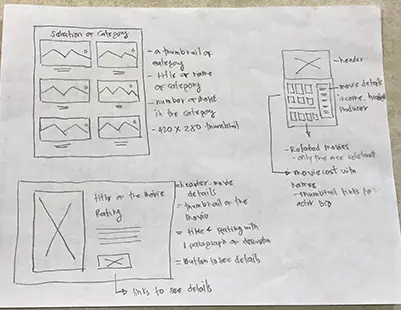 Selection of Category
- a thumbnail of
category
- title or name
of category
- number of movie
in the category
- 420 X 280 thumbnail
header
movie details
income, budget
producer
- Related movies
- only the are relevant
movie cast with
names
- thumbnail links to
actor bio
title of the movie
Rating
header movie
details
= thumbnail of the
movie
= title & Rating with
1 paragraph of
= Button to see details
links to see details